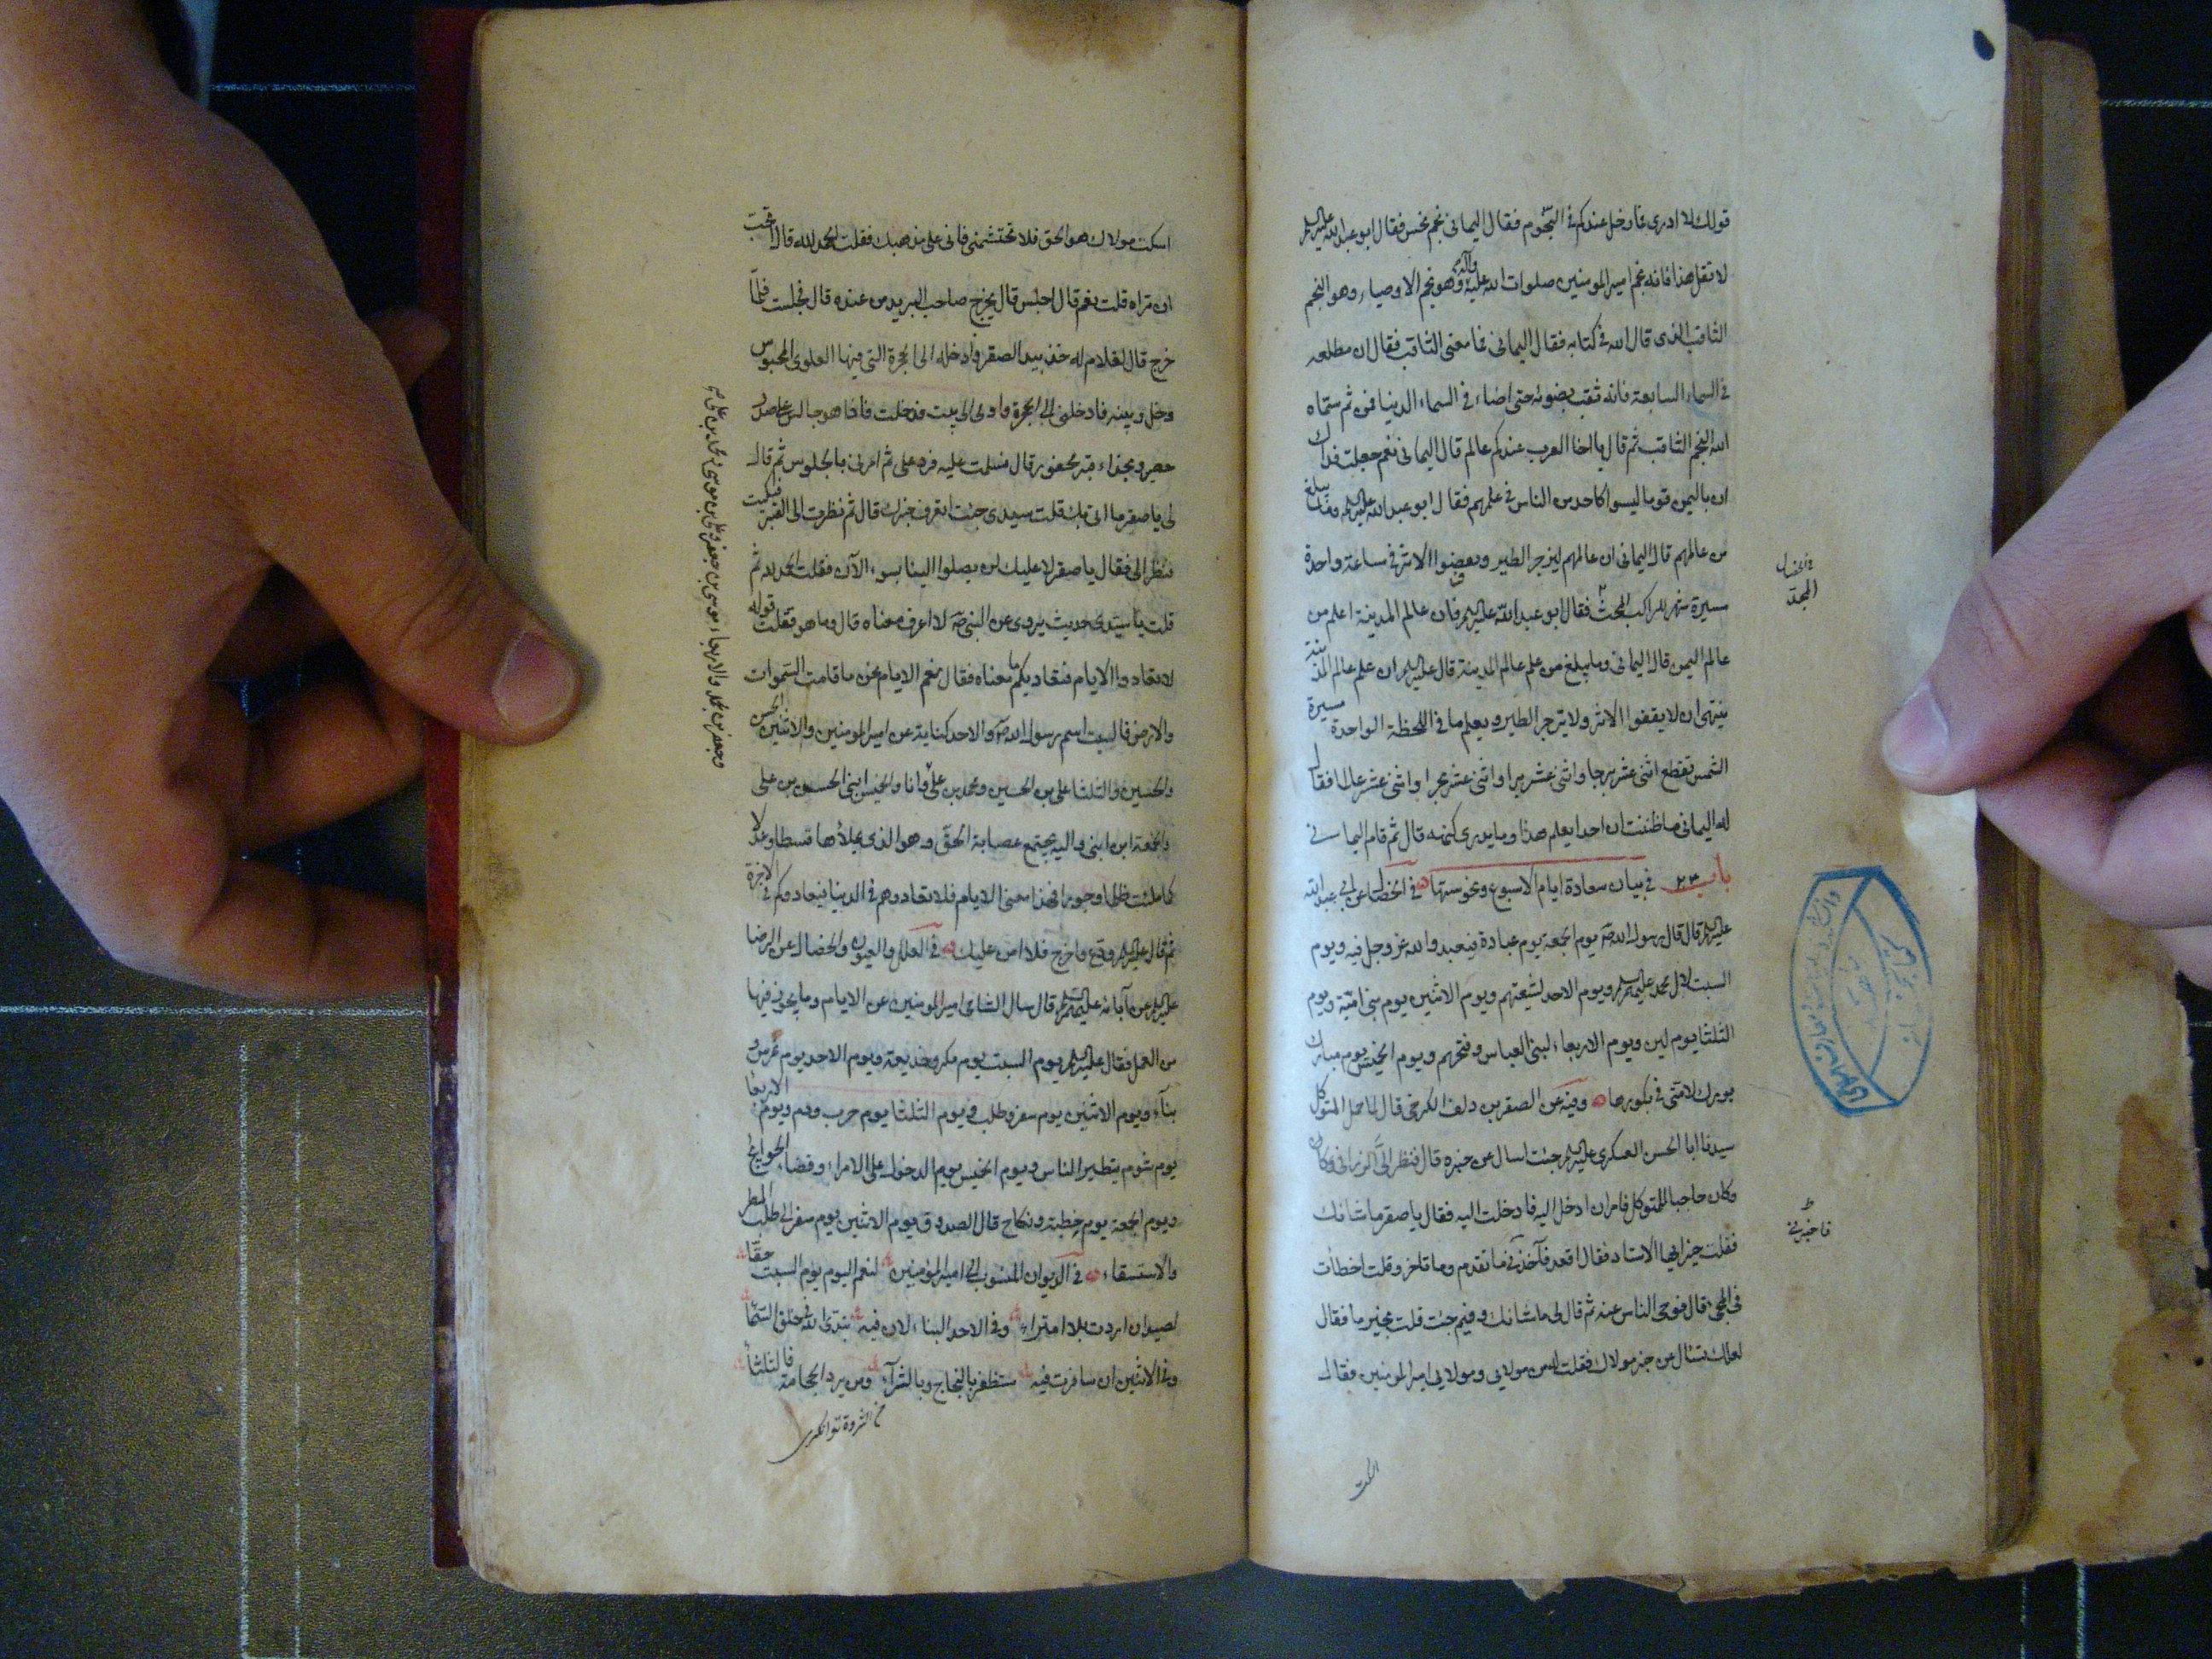 قولك لا ادرى فما زحل عندكم فى النجوم فقال اليمانى نجم نحس فقال ابو عبد الله عليه السلم
لا تقل هذا فانه نجم امير المومنين صلوات الله عليه وآله وهو نجم الاوصياء وهو النجم
الثاقب الذى قال الله فى كتابه فقال اليمانى فما معنى الثاقب فقال ان مطلعه
فى السماء السابعة فانه ثقب بضوئه حتى اضاء فى السماء الدنيا فمن ثم سماه
الله النجم الثاقب ثم قال يا اخا العرب عندكم عالم قال اليمانى نعم جعلت فداك
ان باليمن قوما ليسوا كاحد من الناس فى علمهم فقال ابو عبد الله عليه السلم وما يبلغ
من عالمهم قال اليمانى ان عالمهم ليزجر الطير ويقفوا الاثر فى ساعة واحدة
مسيرة شهر للراكب المحث فقال ابو عبد الله عليه السلم فان عالم المدينة اعلم من
عالم اليمن قال اليمانى وما يبلغ من علم عالم المدينة قال عليه السلم ان علم عالم المدينة
ينتهى ان لا يقفوا الاثر ولا يزجر الطير ويعلم ما فى اللحظة الواحدة مسيرة
الشمس تقطع اثنى عشر برجا واثنى عشر برا واثنى عشر بحرا واثنى عشر عالما فقال
له اليمانى ما ظننت ان احدا يعلم هذا وما يدرى كنهه قال ثم قام اليمانى
باب ٢٣ فى بيان سعادة ايام الاسبوع ونحوستها فى الخصال عن ابى عبد الله
عليه السلم قال قال رسول الله صه يوم الجمعة يوم عبادة فتعبدوا الله عز وجل فيه ويوم
السبت لال محمد عليهم السلم ويوم الاحد لشيعتهم ويوم الاثنين يوم بنى امية ويوم
الثلثا يوم لين ويوم الاربعاء لبنى العباس وفتحهم ويوم الخميس يوم مبارك
بورك لامتى فى بكورها وفيه عن الصقر بن دلف الكرخى قال لما حمل المتوكل
سيدنا ابا الحسن العسكرى عليه السلم جئت اسال عن خبره قال فنظر الى الزرافى وكان
وكان حاجبا للمتوكل فامر ان ادخل اليه فادخلت اليه فقال يا صقر ما شانك
فقلت خير ايها الاستاد فقال اقعد فآخذنى ما تقدم وما تاخر وقلت اخطات
فى المجئ قال فوحى الناس عنه ثم قال لى ما شانك وفيم جئت قلت بخير ما فقال
لعلك تسئال عن خبر مولاك فقلت له من مولاى ومولاى امير المومنين فقال
فى الخصال
المجد
ظ
فاخبرنى
اسكت
اسكت مولاك هو الحق فلا تحتشمنى فانى على مذهبك فقلت الحمد لله قال اتحب
ان تراه قلت نعم قال اجلس قال يخرج صاحب البريد من عنده قال فجلست فلما
خرج قال لغلام له خذ بيد الصقر وادخله الى الحجرة التى فيها العلوى المحبوس
وخل وبينه فادخلنى الى الحجرة واومى الى بيت فدخلت فاذا هو جالس على صدر
حصير وبحذاءه قبر محفور قال فسلمت عليه فرد على ثم امرنى بالجلوس ثم قال
لى يا صقر ما اتى بك قلت سيدى جئت اتعرف خبرك قال ثم نظرت الى القبر فبكيت
فنظر الى فقال يا صقر لا عليك لن يصلوا الينا بسوء الآن فقلت الحمد لله ثم
قلت يا سيدى حديث يروى عن النبى صه لا اعرف معناه قال وما هو فقلت قوله
لا تعادوا الايام فتعاديكم ما معناه فقال نعم الايام نحن ما قامت السموات
والارض فالسبت اسم رسول الله صه والاحد كناية عن امير المومنين والاثنين الحسن
والحسين والثلثا على بن الحسين ومحمد بن على وانا والخميس ابنى الحسن بن على
والجمعة ابن ابنى واليه يجتمع عصابة الحق وهو الذى يملأها قسطا وعدلا
كما ملئت ظلما وجورا فهذا معنى الايام فلا تعادوهم فى الدنيا فيعادوكم فى الاخرة
ثم قال عليه السلم ودع واخرج فلا امن عليك فى العلل والعيون والخصال عن الرضا
عليه السلم عن آبائه عليهم السلم قال سال الشامى امير المومنين عن الايام وما يجوز فيها
من العمل فقال عليه السلم يوم السبت يوم مكر وخديعة ويوم الاحد يوم غرس و
بناء ويوم الاثنين يوم سفر وطلب ويوم الثلثا يوم حرب ودم ويوم الاربعا
يوم شوم يتطير الناس ويوم الخميس يوم الدخول على الامراء وقضاء الحوايج
ويوم الجمعة يوم خطبة ونكاح قال الصدوق يوم الاثنين يوم سفر الى طلب المطر
والاستسقاء فى الديوان المنسوب الى امير المؤمنين لنعم اليوم يوم السبت حقا
لصيد ان اردت بلا امتراء وفى الاحد البناء لان فيه تبتدى الله فى خلق السماء
وفى الاثنين ان سافرت فيه ستظفر بالنجاح وبالثراء ومن يرد الحجامة فالثلثا
الثروة توانكرى
موسى بن جعفر وعلى بن موسى ومحمد بن على